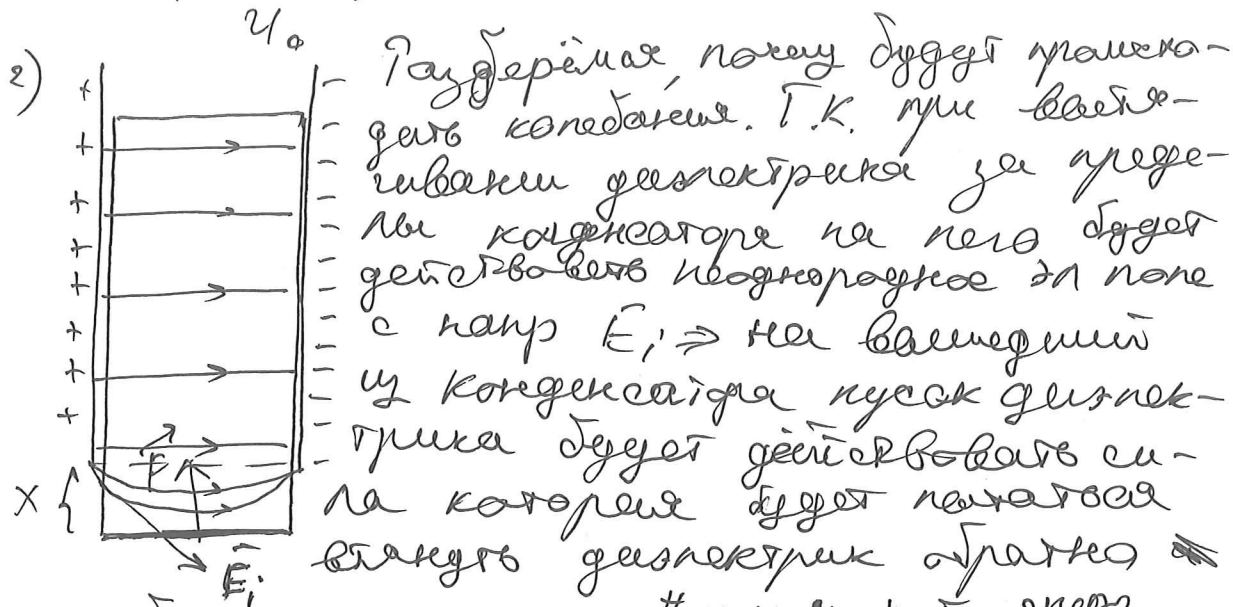 U₀
2) Разберёмся, почему будут происхо-
дить колебания. Т.к. при вытя-
гивании диэлектрика за преде-
лы конденсатора на него будет
действовать неоднородное эл поле
с напр E⃗ᵢ ⇒ на вышедший
из конденсатора кусок диэлек-
трика будет действовать си-
ла которая будет пытаться
втянуть диэлектрик обратно
F
x {
E⃗ᵢ